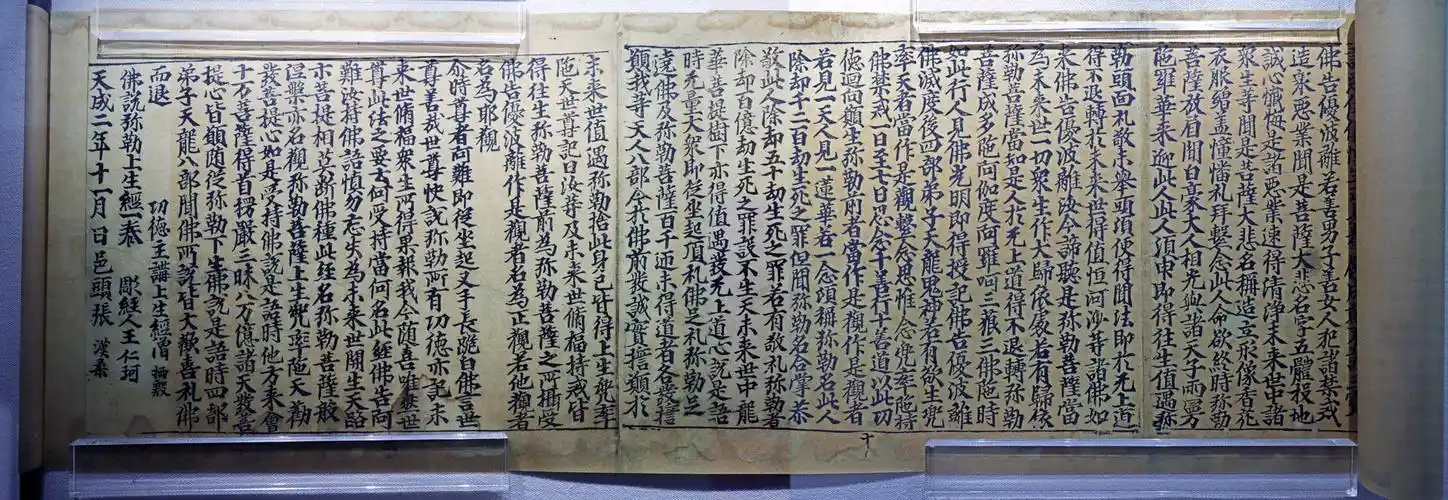 佛告優波離若善男子善女人犯諸禁戒
造衆惡業聞是菩薩大悲名字五體投地
誠心懺悔是諸惡業速得清淨未來世中諸
衆生等聞是菩薩大悲名稱造立形像香花
衣服繒蓋幢幡礼拜繫念此人命欲終時弥勒
菩薩放眉間白豪大人相光與諸天子雨曼
陁羅華來迎此人此人須臾即得往生值遇弥
勒頭面礼敬未舉頭頃便得聞法即於无上道
得不退轉於未來世得值恒河沙等諸佛如
來佛告優波離汝今諦聽是弥勒菩薩當
為未來世一切衆生作大歸依處若有歸依
弥勒菩薩當知是人於无上道得不退轉弥勒
菩薩成多陁阿伽度阿羅呵三藐三佛陁時
如此行人見佛光明即得授記佛告優波離
佛滅度後四部弟子天龍鬼神若有欲生兜
率天者當作是觀繫念思惟念兜率陁持
佛禁戒一日至七日思念十善行十善道以此功
德迴向願生弥勒前者當作是觀作是觀者
若見一天人見一蓮華若一念頃稱弥勒名此人
除却千二百劫生死之罪但聞弥勒名合掌恭
敬此人除却五十劫生死之罪若有敬礼弥勒者
除却百億劫生死之罪設不生天未來世中龍
華菩提樹下亦得值遇發无上道心說是語
時无量大衆即從坐起頂礼佛足礼弥勒足
遶佛及弥勒菩薩百千迊未得道者各發擔
願我等天人八部今於佛前發誠實擔願於
未來世值遇弥勒捨此身已皆得上生兜率
陁天世尊記曰汝等及未來世修福持戒皆
得往生弥勒菩薩前為弥勒菩薩之所攝受
佛告優波離作是觀者名為正觀若他觀者
名為邪觀
尒時尊者阿難即從坐起叉手長跪白佛言世
尊善哉世尊快說弥勒所有功德亦記未
來世修福衆生所得果報我今隨喜唯然世
尊此法之要云何受持當何名此經佛告阿
難汝持佛語慎勿忘失為未來世開生天路
示菩提相莫斷佛種此經名弥勒菩薩般
涅槃亦名觀弥勒菩薩上生兜率陁天勸
發菩提心如是受持佛說是語時他方來會
十万菩薩得首楞嚴三昧八万億諸天發菩
提心皆願随從弥勒下生佛說是語時四部
弟子天龍八部聞佛所說皆大歡喜礼佛
而退
佛說弥勒上生經一卷
功德主講上生經僧 栖殷
彫經人王仁珂
天成二年十一月 日邑頭張 漢柔
十